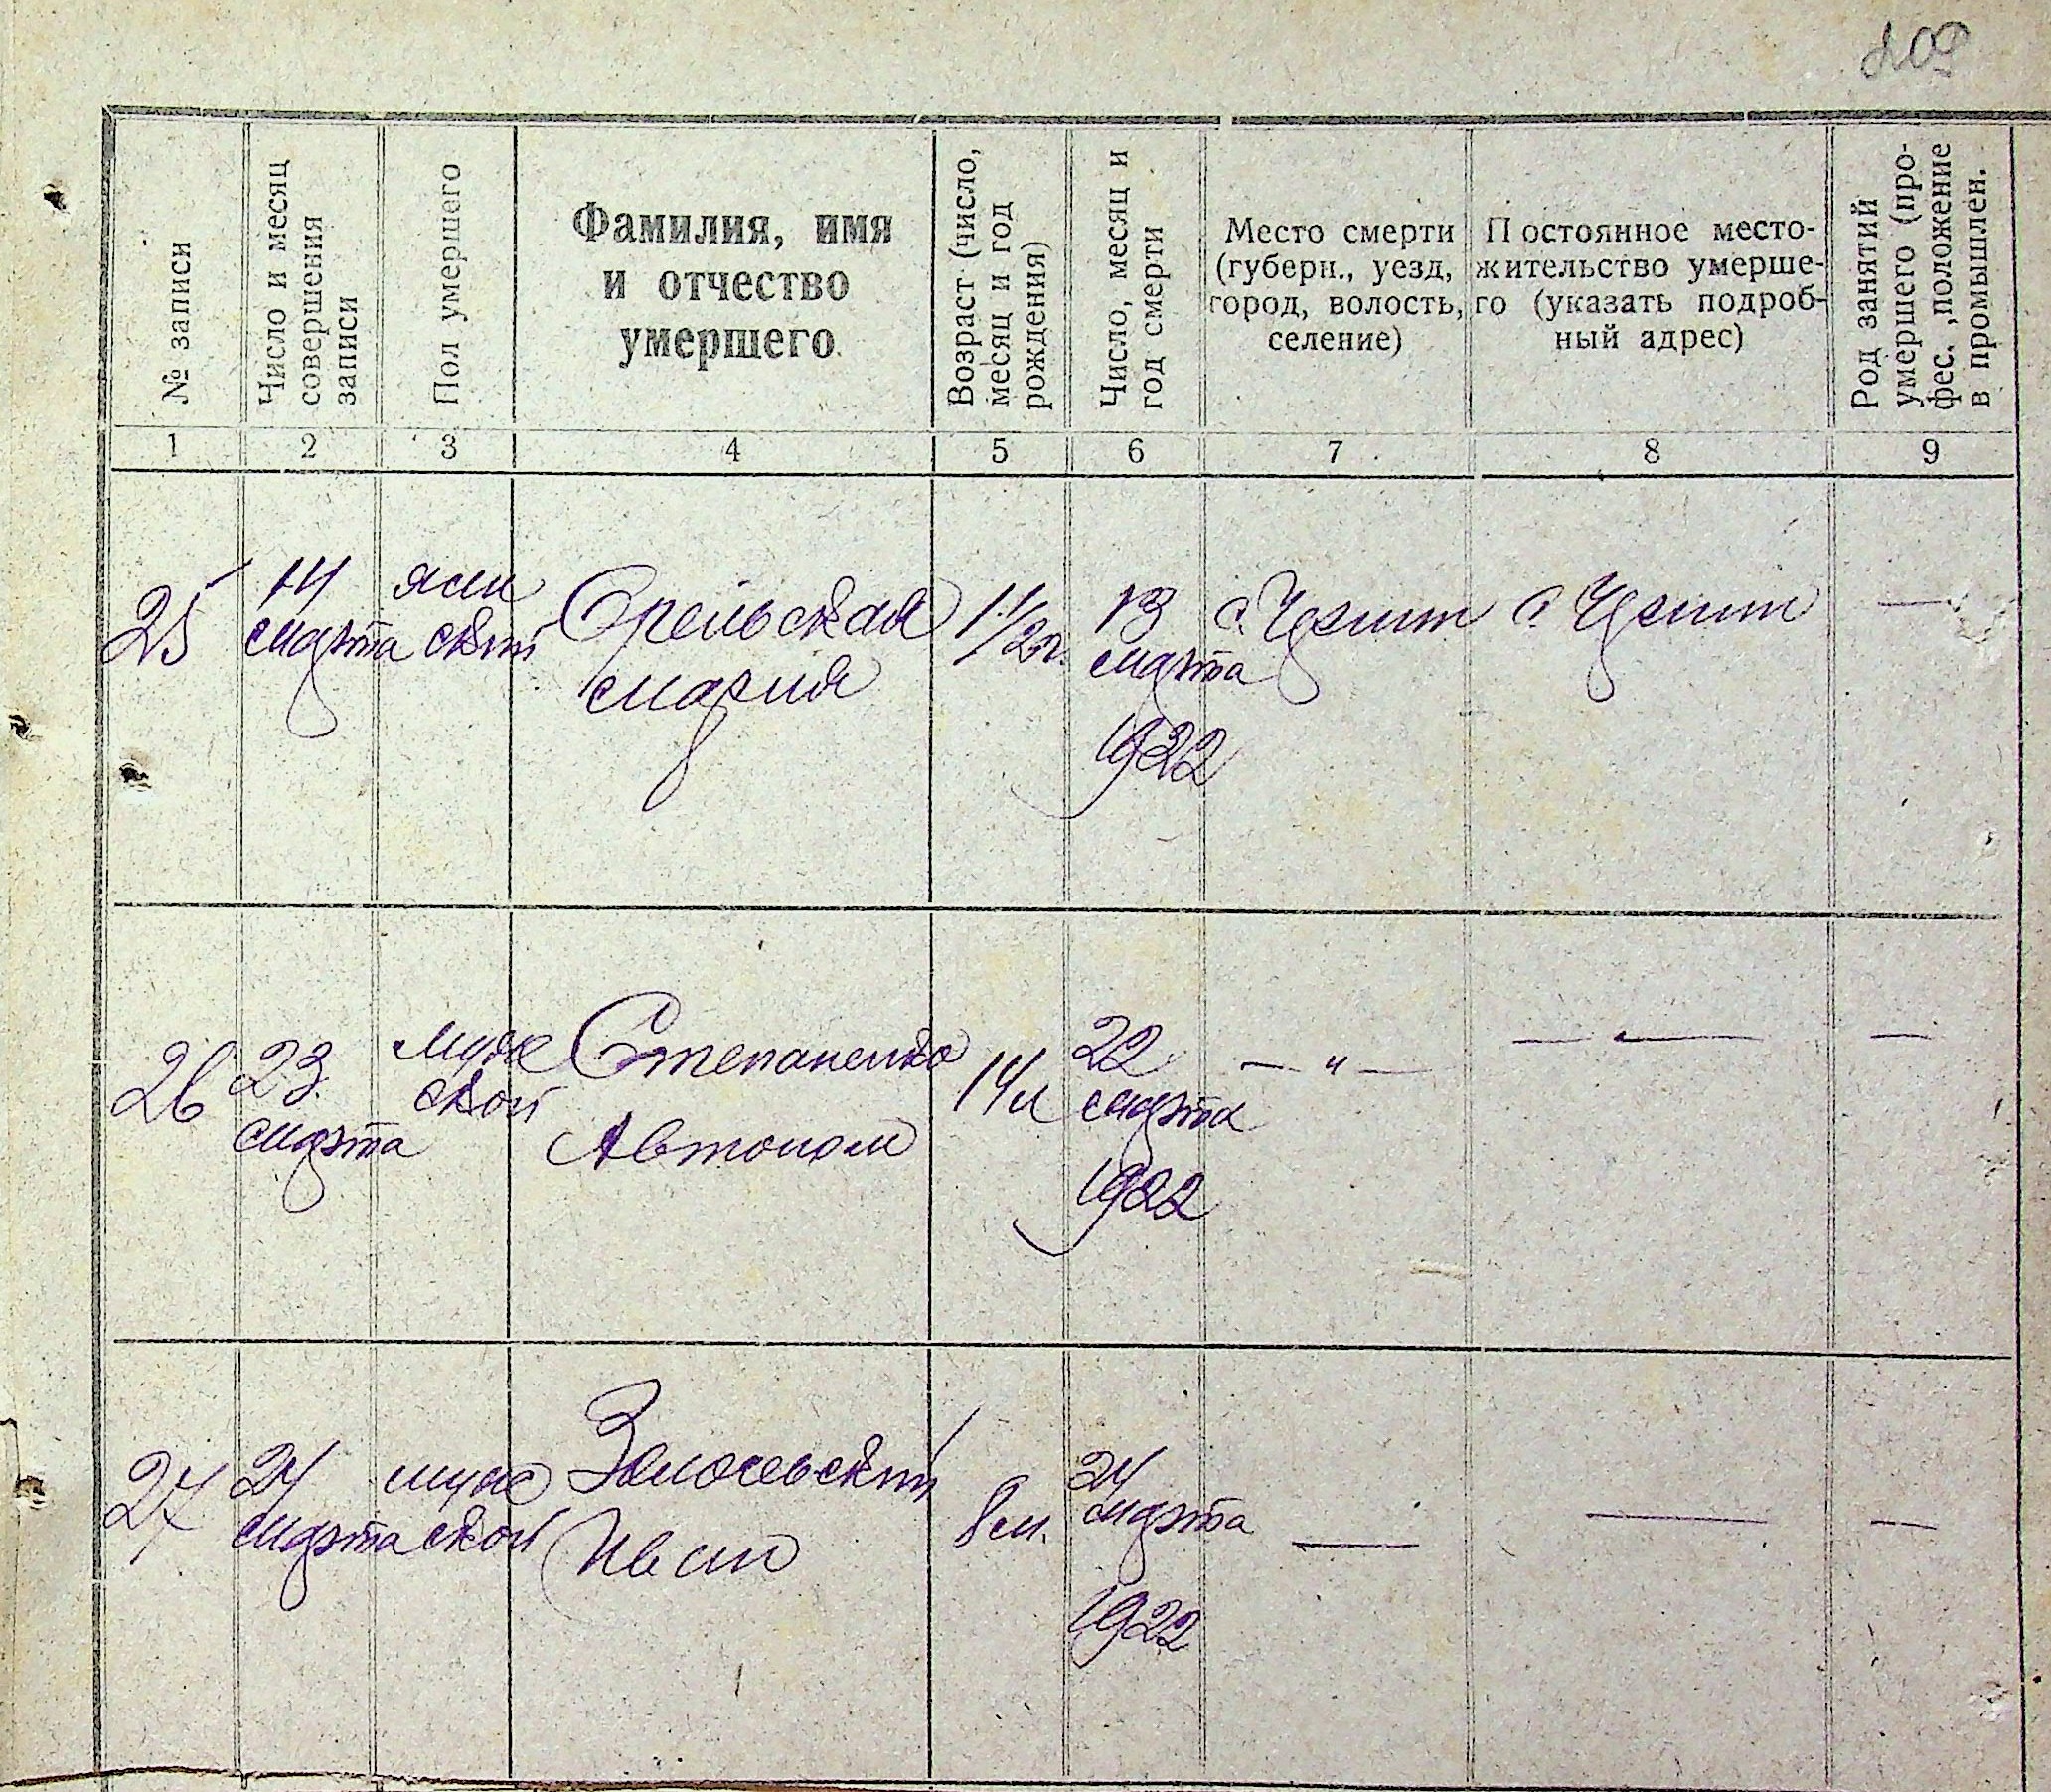 № записи
Число и месяц
совершения
записи
Пол умершего
Фамилия, имя
и отчество
умершего
Возраст (число,
месяц и год
рождения)
Число, месяц и
год смерти
Место смерти
(губерн., уезд,
город, волость,
селение)
Постоянное место-
жительство умерше-
го (указать подроб-
ный адрес)
Род занятий
умершего (про-
фес., положение
в промышлен.
1 2 3 4 5 6 7 8 9
25
14
марта
жен
ский
Орельская
Мария
1 1/2 г.
13
марта
1922
26
23.
марта
муж
ской
Степаненко
Автоном
14
22
марта
1922
— " —
27
24
марта
муж
ской
Иван
8 м.
24
марта
1922